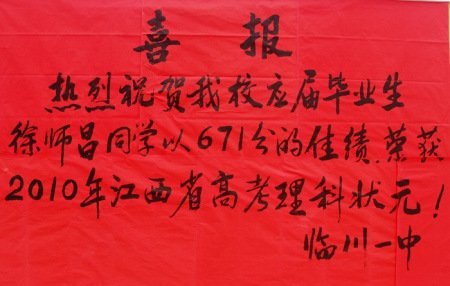 喜报
热烈祝贺我校应届毕业生
徐师昌同学以671分的佳绩.荣获
2010年江西省高考理科状元！
临川一中